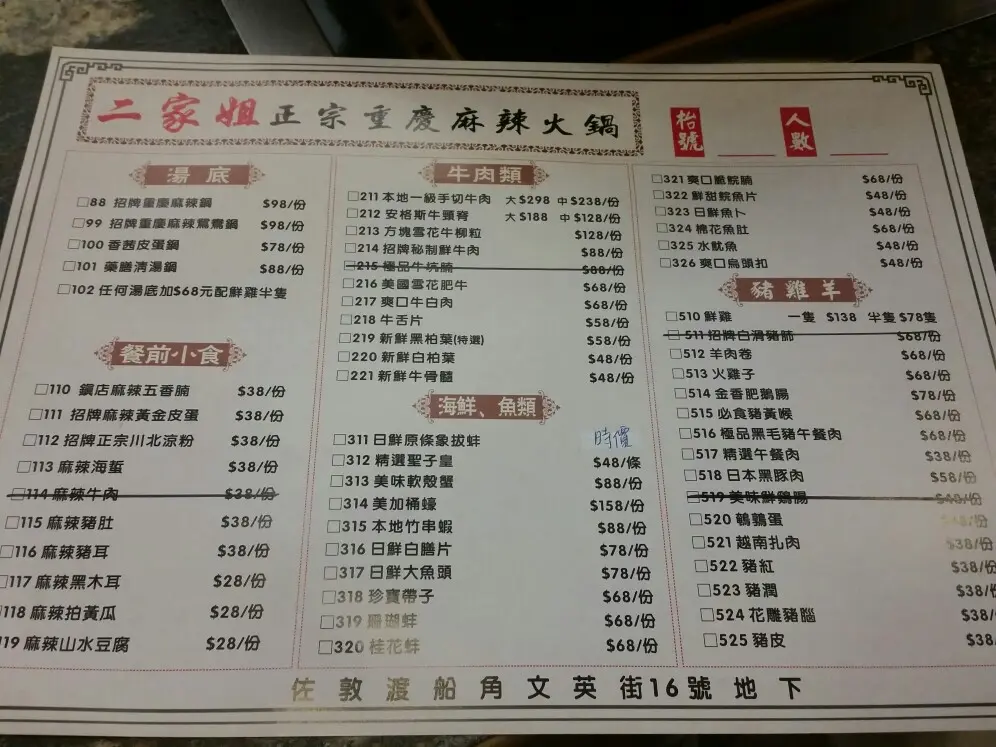 二家姐正宗重慶麻辣火鍋
枱號
人數
湯底
88 招牌重慶麻辣鍋 $98/份
99 招牌重慶麻辣鴛鴦鍋 $98/份
100 香茜皮蛋鍋 $78/份
101 藥膳清湯鍋 $88/份
102 任何湯底加$68元配鮮雞半隻
餐前小食
110 鍋店麻辣五香腩 $38/份
111 招牌麻辣黃金皮蛋 $38/份
112 招牌正宗川北涼粉 $38/份
113 麻辣海蜇 $38/份
114 麻辣牛肉 $38/份
115 麻辣豬肚 $38/份
116 麻辣豬耳 $38/份
117 麻辣黑木耳 $28/份
118 麻辣拍黃瓜 $28/份
119 麻辣山水豆腐 $28/份
牛肉類
211 本地一級手切牛肉 大$298 中$238/份
212 安格斯牛頸脊 大$188 中$128/份
213 方塊雪花牛柳粒 $128/份
214 招牌秘制鮮牛肉 $88/份
215 極品牛坑腩 $88/份
216 美國雪花肥牛 $68/份
217 爽口牛白肉 $68/份
218 牛舌片 $58/份
219 新鮮黑柏葉(特選) $58/份
220 新鮮白柏葉 $48/份
221 新鮮牛骨髓 $48/份
海鮮、魚類
311 日鮮原條象拔蚌 時價
312 精選聖子皇 $48/條
313 美味軟殼蟹 $88/份
314 美加桶蠔 $158/份
315 本地竹串蝦 $88/份
316 日鮮白膳片 $78/份
317 日鮮大魚頭 $78/份
318 珍寶帶子 $68/份
319 珊瑚蚌 $68/份
320 桂花蚌 $68/份
321 爽口脆鯇腩 $68/份
322 鮮甜鯇魚片 $48/份
323 日鮮魚卜 $48/份
324 棉花魚肚 $68/份
325 水魷魚 $48/份
326 爽口烏頭扣 $48/份
豬雞羊
510 鮮雞 一隻 $138 半隻$78隻
511 招牌白滑豬肺 $68/份
512 羊肉卷 $68/份
513 火雞子 $68/份
514 金香肥鵝腸 $78/份
515 必食豬黃喉 $68/份
516 極品黑毛豬午餐肉 $68/份
517 精選午餐肉 $38/份
518 日本黑豚肉 $58/份
519 美味鮮鵝腸 $48/份
520 鵪鶉蛋 $48/份
521 越南扎肉 $38/份
522 豬紅 $38/份
523 豬潤 $38/份
524 花雕豬腦 $38/
525 豬皮 $38/
佐敦渡船角文英街16號地下